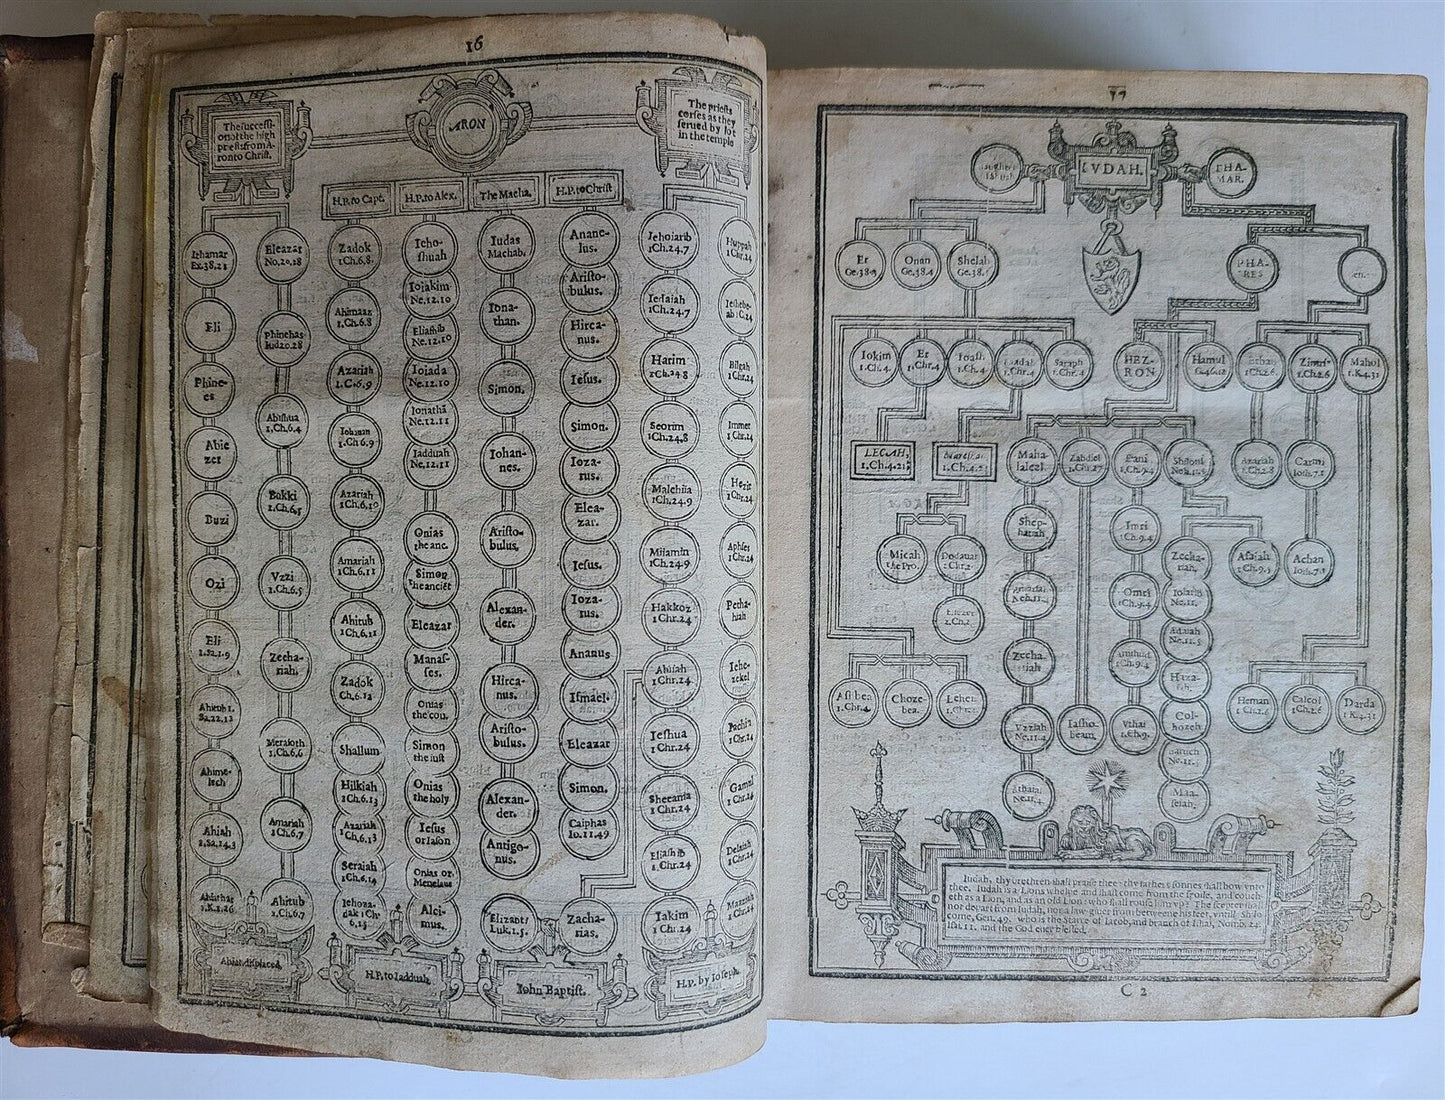 16
The successi-
on of the high
priests from A-
ron to Christ.
ARON
The priests
corses as they
serued by lot
in the temple
H.P. to Capt.
H.P. to Alex.
The Macha.
H.P. to Christ
Ithamar
Ex.38.21
Eli
Phine-
es
Abie
zer
Buzi
Ozi
Eli
1.Sa.1.9
Ahitub 1.
Sa.22.12
Ahime-
lech
Ahiah
1.Sa.14.3
Abiathar
1.K.1.26
Abiat. displaced.
Eleazar
No.20.28
Phinehas
Iud20.28
Abishua
1.Ch.6.4
Bukki
1.Ch.6,5
Vzzi
1.Ch.6.5
Zecha-
riah.
Meraioth
1.Ch.6,6
Amariah
1.Ch.6,7
Ahitub
1.Ch.6.7
Zadok
1Ch.6.8.
Ahimaaz
1.Ch.6.8
Azariah
1.C.6.9
Iohanan
1.Ch 6.9
Azariah
1Ch.6,10
Amariah
1Ch.6.11
Ahitub
1Ch.6,11
Zadok
Ch.6.12
Shallum
Hilkiah
1Ch.6.13
Azariah
1Ch.6,13
Seraiah
1Ch.6,14
Iehoza-
dak 1Ch
6,15
H.P. to Iadduah.
Ieho-
shuah
Ioiakim
Ne.12.10
Eliashib
Ne.12.10
Ioiada
Ne.12.10
Ionathā
Ne.12.11
Iadduah
Ne,12,11
Onias
the anc.
Simon
the anciēt
Eleazar
Manas-
ses.
Onias
the con.
Simon
the iust
Onias
the holy
Iesus
or Iason
Onias or
Menelaus
Alci-
mus.
Iudas
Machab.
Iona-
than.
Simon.
Iohan-
nes.
Aristo-
bulus.
Alexan-
der.
Hirca-
nus.
Aristo-
bulus.
Alexan-
der.
Antigo-
nus.
Elizant/
Luk.1.5.
Anane-
lus.
Aristo-
bulus.
Hirca-
nus.
Iesus.
Simon.
Ioza-
rus.
Elea-
zar.
Iesus.
Ioza-
rus.
Ananus
Ismael.
Eleazar
Simon.
Caiphas
Io.11.49
Zacha-
rias.
Iohn Baptist.
Iehoiarib
1Ch.24.7
Iedaiah
1Ch.24.7
Harim
1Ch.24.8
Seorim
1Ch.24,8
Malchiia
1Ch.24.9
Miiamin
1Ch.24.9
Hakkoz
1 Chr.24
Abiiah
1Chr.24
Ieshua
1 Chr.24
Shecania
1 Chr.24
Eliashib
1 Chr.24
Iakim
1 Chr.24
H.P. by Ioseph.
Huppah
1Chr.24
Iesbebe-
ab 1C.24
Bilgah
1Chr.24
Immer
1Chr.24
Hezir
1Chr.24
Aphses
1Chr.24
Petha-
hiah
Iehe-
zekel
Iachin
1Chr.24
Gamul
1Chr.24
Delaiah
1Chr.24
Maaziah
1Chr.24
IVDAH.
THA-
MAR.
Er
Ge.38.3
Onan
Ge.38.4
Shelah
Ge.38.5
PHA-
RES
Iokim
1.Ch.4.
Er
1.Ch.4
Ioash.
1.Ch.4
1.Chr.4
Saraph
1.Chr.4
HEZ-
RON
Hamul
Ethan
1Ch.2.6
Zimri
1Ch.2.6
Mahol
1.K.4.31
LECAH,
1.Ch.4.21
1.Ch.4.2
Maha-
laleel.
Zabdiel
1.Chr.27
Bani
1Ch.9.4
Shiloni
Azariah
1Ch.2.8
Carmi
Iosh.7.1
Shep-
hatiah
Imri
1Ch.9.4
Micah
the Pro.
Zecha-
riah.
Asaiah
1Ch.9.5
Achan
Iosh.7.1
Omri
1Ch.9.4
Ioiarib
Ne.11.
Adaiah
Ne.11.5
Haza-
iah.
Zecha-
riah
Ashbea
1.Chr.4
Choze-
bea.
Vzziah
Ne.11.4
Iasho-
beam.
Vthai
1Ch.9.
Col-
hozeh
Baruch
Ne.11.5
Maa-
seiah.
Athaia
Ne.11.4
Heman
1.Ch.2.6
Calcol
1Ch.2.6
Darda
1 K.4.31
Iudah, thy brethren shall praise thee: thy fathers sonnes shall bow vnto
thee. Iudah is a Lions whelpe and shall come from the spoile, and couch-
eth as a Lion, and as an old Lion: who shall rouse him vp? The scepter shal
not depart from Iudah, nor a law-giuer from betweene his feet, vntill Shilo
come, Gen.49. who is the Starre of Iacob, and branch of Ishai, Nomb.24.
Isai.11. and the God euer blessed.
C 2